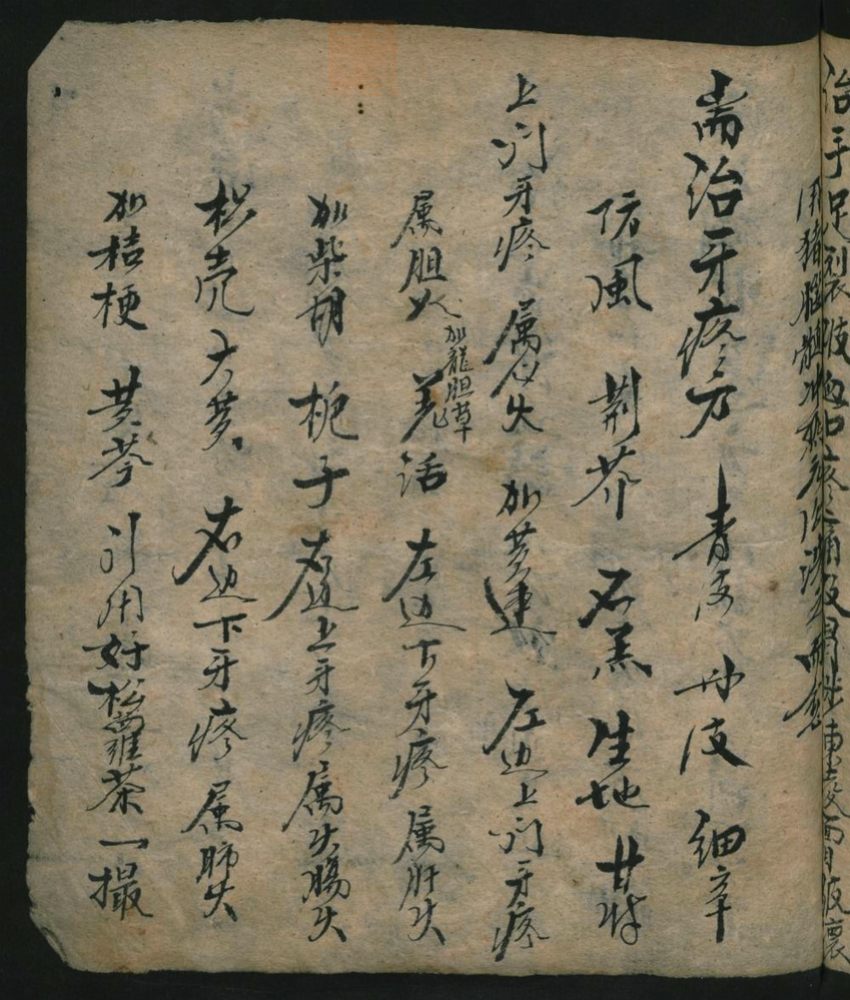 治手足裂
耑治牙疼方 青皮 丹皮 細辛
防風 荆芥 石羔 生地 甘草
上门牙疼 属心火 加黄連 左边上门牙疼
属胆火 加龍胆草 羌活 左边下牙疼 属肝火
加柴胡 栀子 右边上牙疼 属大腸火
枳壳 大黄 右边下牙疼 属肺火
加桔梗 黄芩 引用好松蘿茶一撮